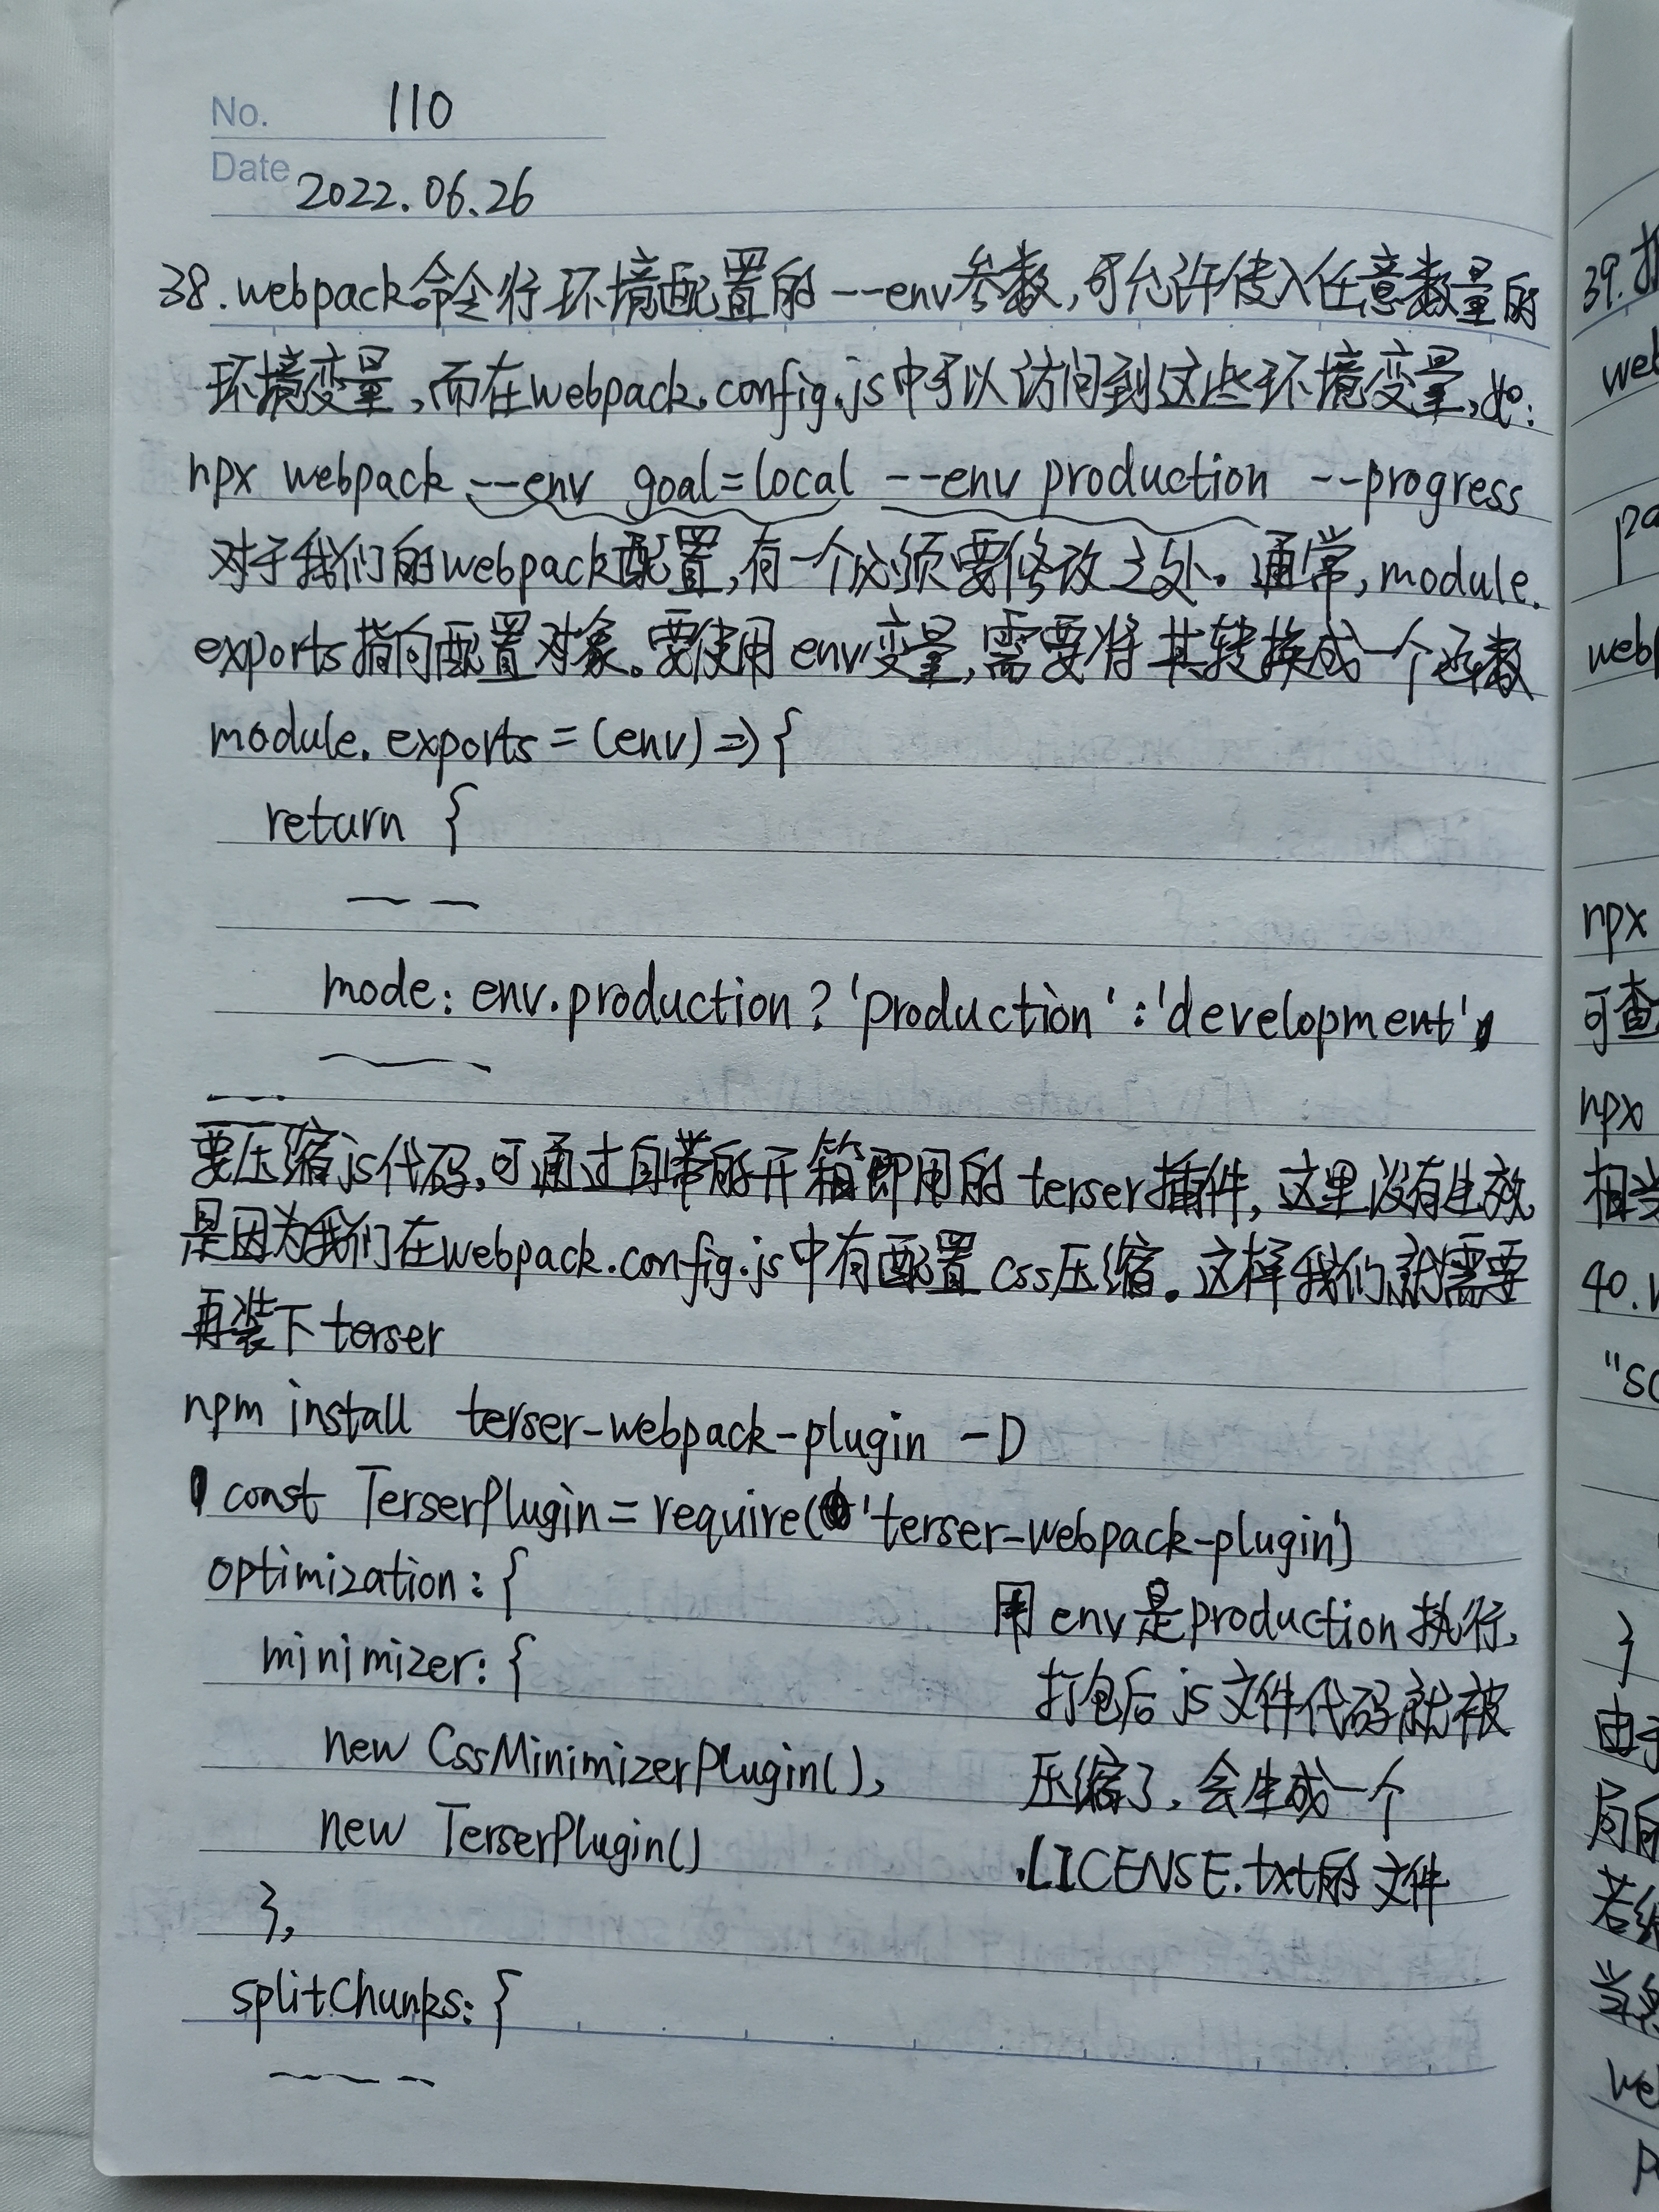 No. 110
Date 2022.06.26
38.webpack命令行环境配置的--env参数,可允许传入任意数量的
环境变量,而在webpack.config.js中可以访问到这些环境变量,如:
npx webpack --env goal=local --env production --progress
对于我们的webpack配置,有一个必须要修改之处。通常,module.
exports指向配置对象。要使用env变量,需要将其转换成一个函数
module.exports=(env)=>{
return {
mode: env.production?'production':'development',
要压缩js代码,可通过自带的开箱即用的terser插件,这里没有生效
是因为我们在webpack.config.js中有配置css压缩。这样我们就需要
再装下terser
npm install terser-webpack-plugin -D
const TerserPlugin=require('terser-webpack-plugin')
optimization: {
minimizer: {
new CssMinimizerPlugin(),
new TerserPlugin()
},
splitChunks: {
用env是production执行,
打包后js文件代码就被
压缩了,会生成一个
.LICENSE.txt的文件
39.
npx
可查
npx
相当
40.
"sc
}
由于
局部
当